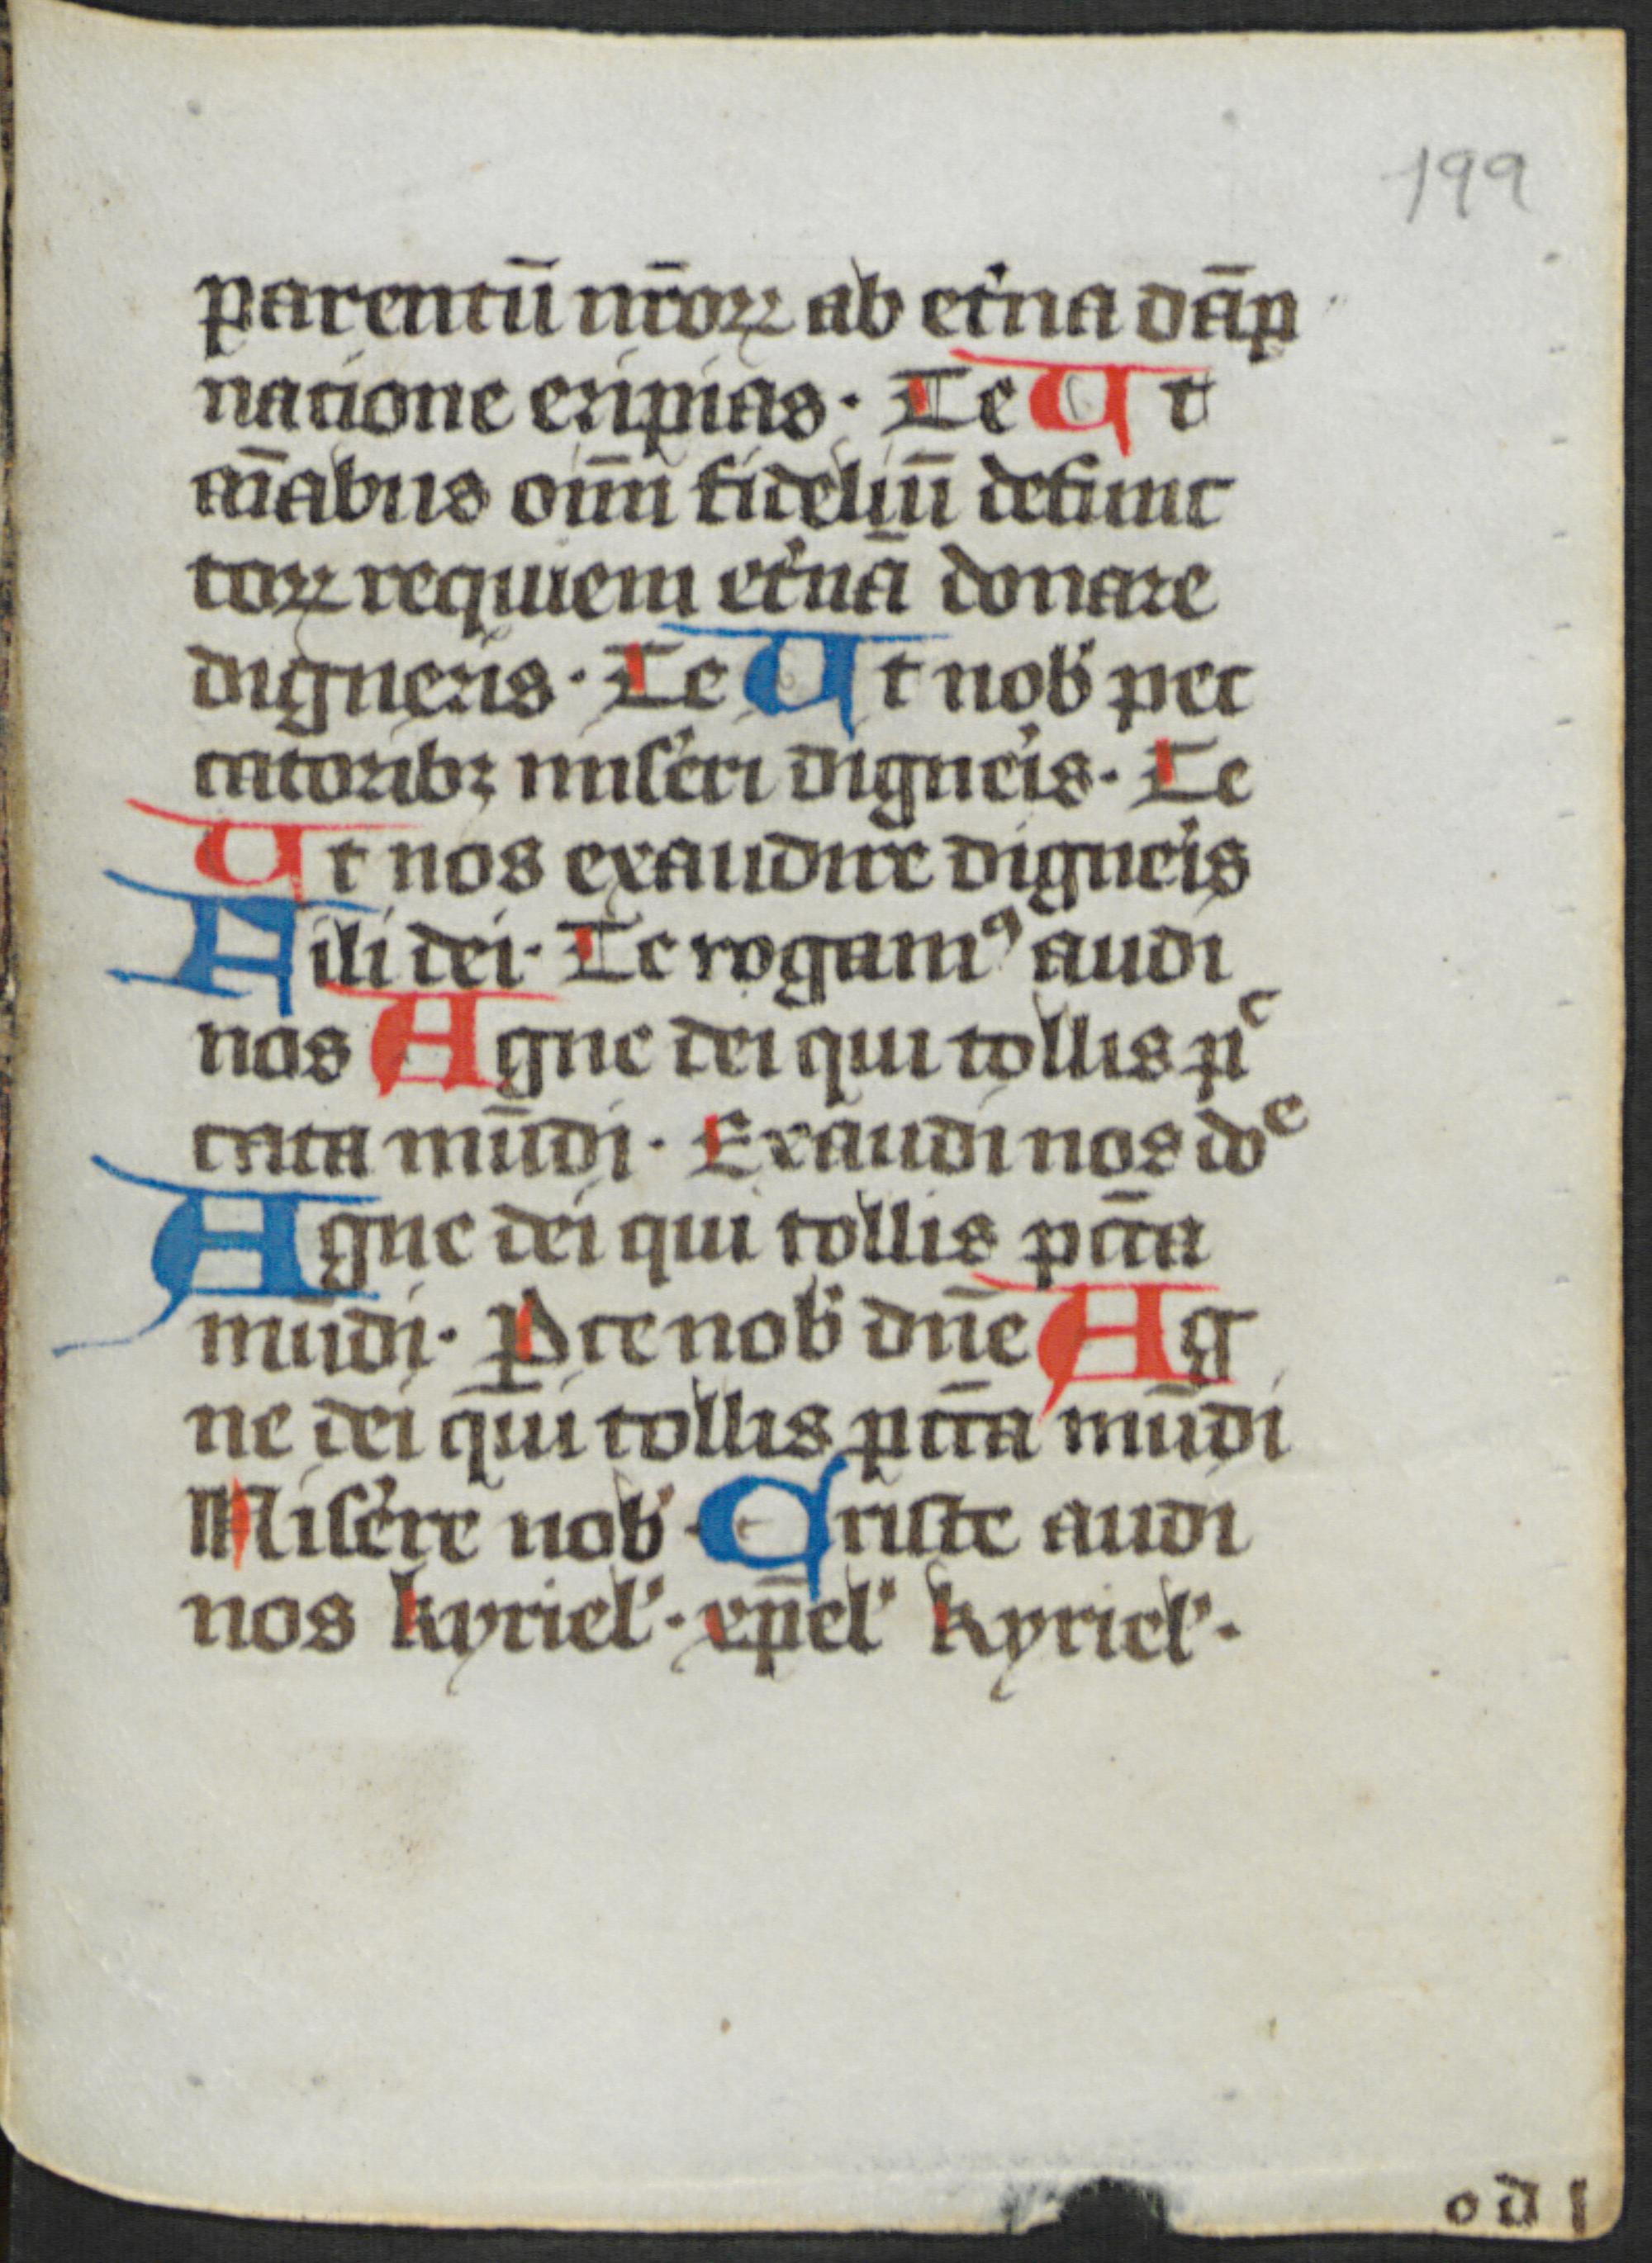 199
parentū nr̄oꝝ ab et̾na dāp
natione eripias · Te Ut
aīabus oīm fidelium̄ defunc
toꝝ requiem et̾nā donare
digneris · Te Ut nob̾ pec
catoribꝫ mis̾eri digne̾is · Te
Ut nos exaudire digne̾is
Fili dei · Te rogamꝰ audi
nos Agne dei qui tollis pᶜ
cata mūdi · Exaudi nos doᵉ
Agne dei qui tollis pcc̄a
mūdi · Ꝑce nob̾ dn̄e Ag
ne dei qui tollis pcc̄a mūdi
Mis̾ere nob̾ · Criste audi
nos kyriel̾ · xp̄el̾ kyriel̾ ·